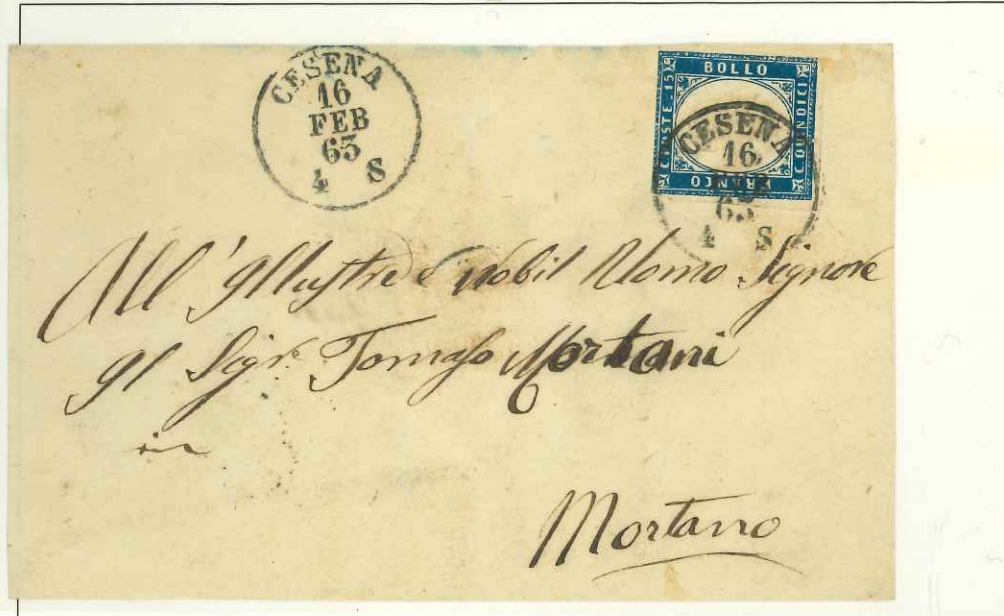 CESENA
16
FEB
63
4 S
BOLLO
C. QUINDICI
FRANCO
C. POSTE. 15
CESENA
16
FEB
63
4 S
All' Illustre e Nobil Uomo Signore
Il Sigr. Tomaso Mortani
in
Mortano